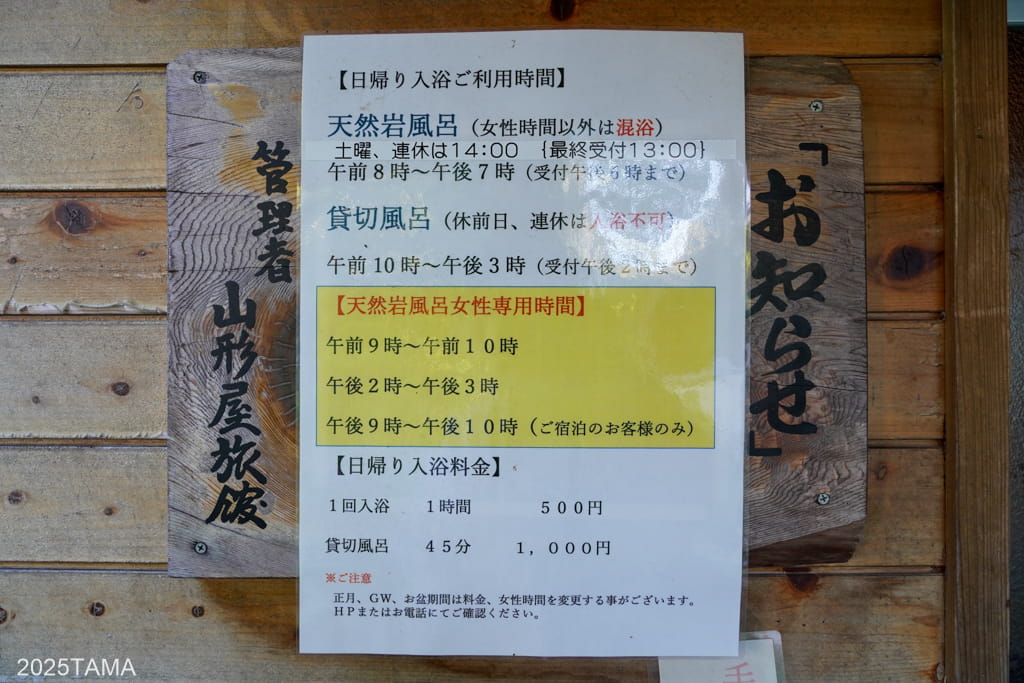 「お知らせ」
【日帰り入浴ご利用時間】
天然岩風呂（女性時間以外は混浴）
土曜、連休は14:00 {最終受付13:00}
午前８時～午後７時（受付午後6時まで）
貸切風呂（休前日、連休は入浴不可）
午前10時～午後３時（受付午後２時まで）
【天然岩風呂女性専用時間】
午前９時～午前１０時
午後２時～午後３時
午後９時～午後１０時（ご宿泊のお客様のみ）
【日帰り入浴料金】
１回入浴 １時間 ５００円
貸切風呂 ４５分 １，０００円
※ご注意
正月、GW、お盆期間は料金、女性時間を変更する事がございます。
ＨＰまたはお電話にてご確認ください。
管理者
山形屋旅館
2025TAMA